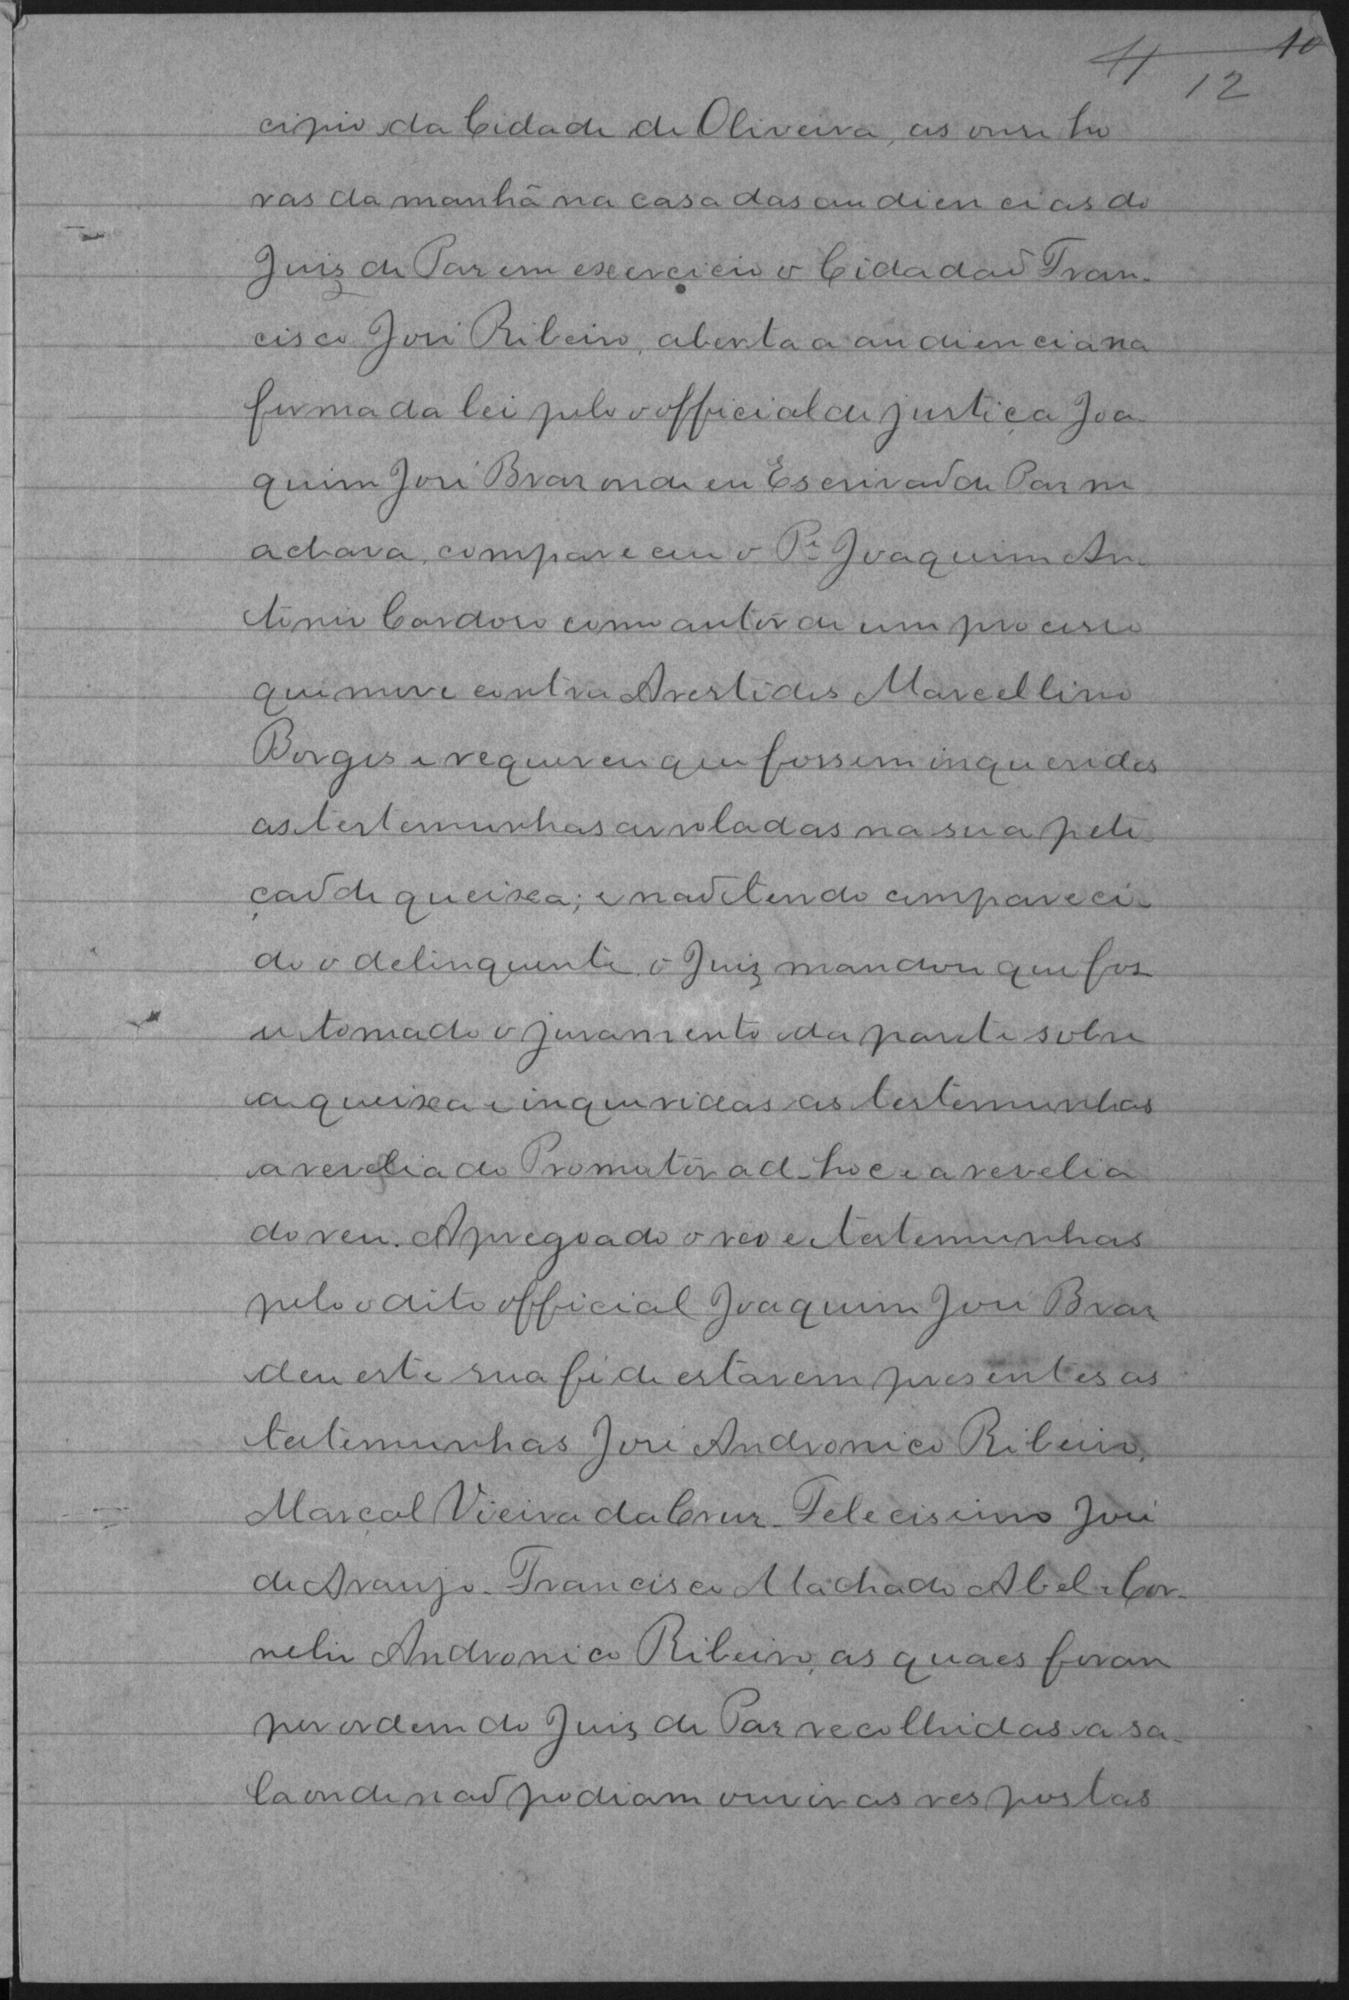 11 10
12
cipio da Cidade de Oliveira, as onse ho
ras da manhã na casa das audiencias do
Juiz de Paz em exercicio o Cidadaõ Fran-
cisco José Ribeiro, aberta a audiencia na
forma da lei pelo official de justiça Joa-
quim José Braz onde eu Escrivaõ de Paz me
achava, compareceu o Pe Joaquim An-
tonio Cardoso como autôr de um processo
que move contra Arestides Marcellino
Borges e requereu que fossem inqueridos
as testemunhas arroladas na sua peti-
çaõ de queixa; e naõ tendo compareci-
do o delinquente o Juiz mandou que fos-
se tomado o juramento da parte sobre
a queixa e inqueridas as testemunhas
a revelia do Promotôr ad-hoc e a revelia
do reu. Apregoado o reo e testemunhas
pelo dito official Joaquim José Braz
deu este sua fé de estarem presentes as
testemunhas José Andronico Ribeiro,
Marçal Vieira da Cruz. Felecissimo José
de Araujo. Francisco Machado Abel e Cor-
nelio Andronico Ribeiro, as quaes foram
por ordem do Juiz de Paz recolhidas a sa-
la onde naõ podiam ouvir as respostas